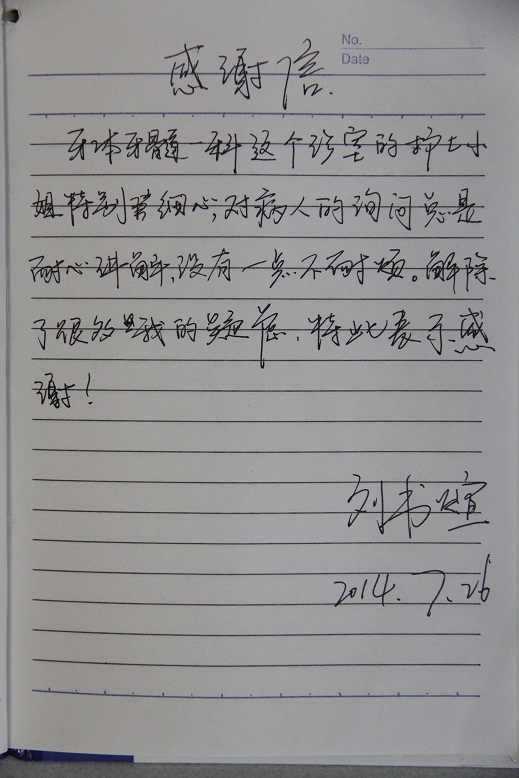 No.
Date
感谢信.
牙体牙髓一科这个诊室的护士小
姐特别算细心,对病人的询问总是
耐心讲解,没有一点不耐烦。解除
了很多我的疑惑,特此表示感
谢!
刘书煊
2014.7.26